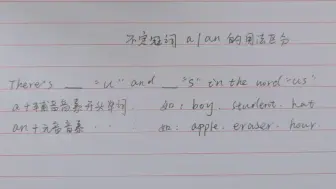 不定冠词 a/an 的用法区分
There's ___ "u" and ___ "s" in the word "us"
a + 辅音音素开头单词. 如: boy. student. hat
an + 元音音素 · · 如: apple. eraser. hour.